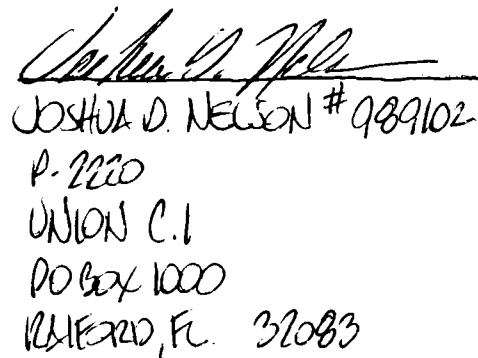 Joshua D. Nelson
JOSHUA D. NELSON #989102
P-2220
UNION C.I
PO BOX 1000
RAIFORD, FL. 32083